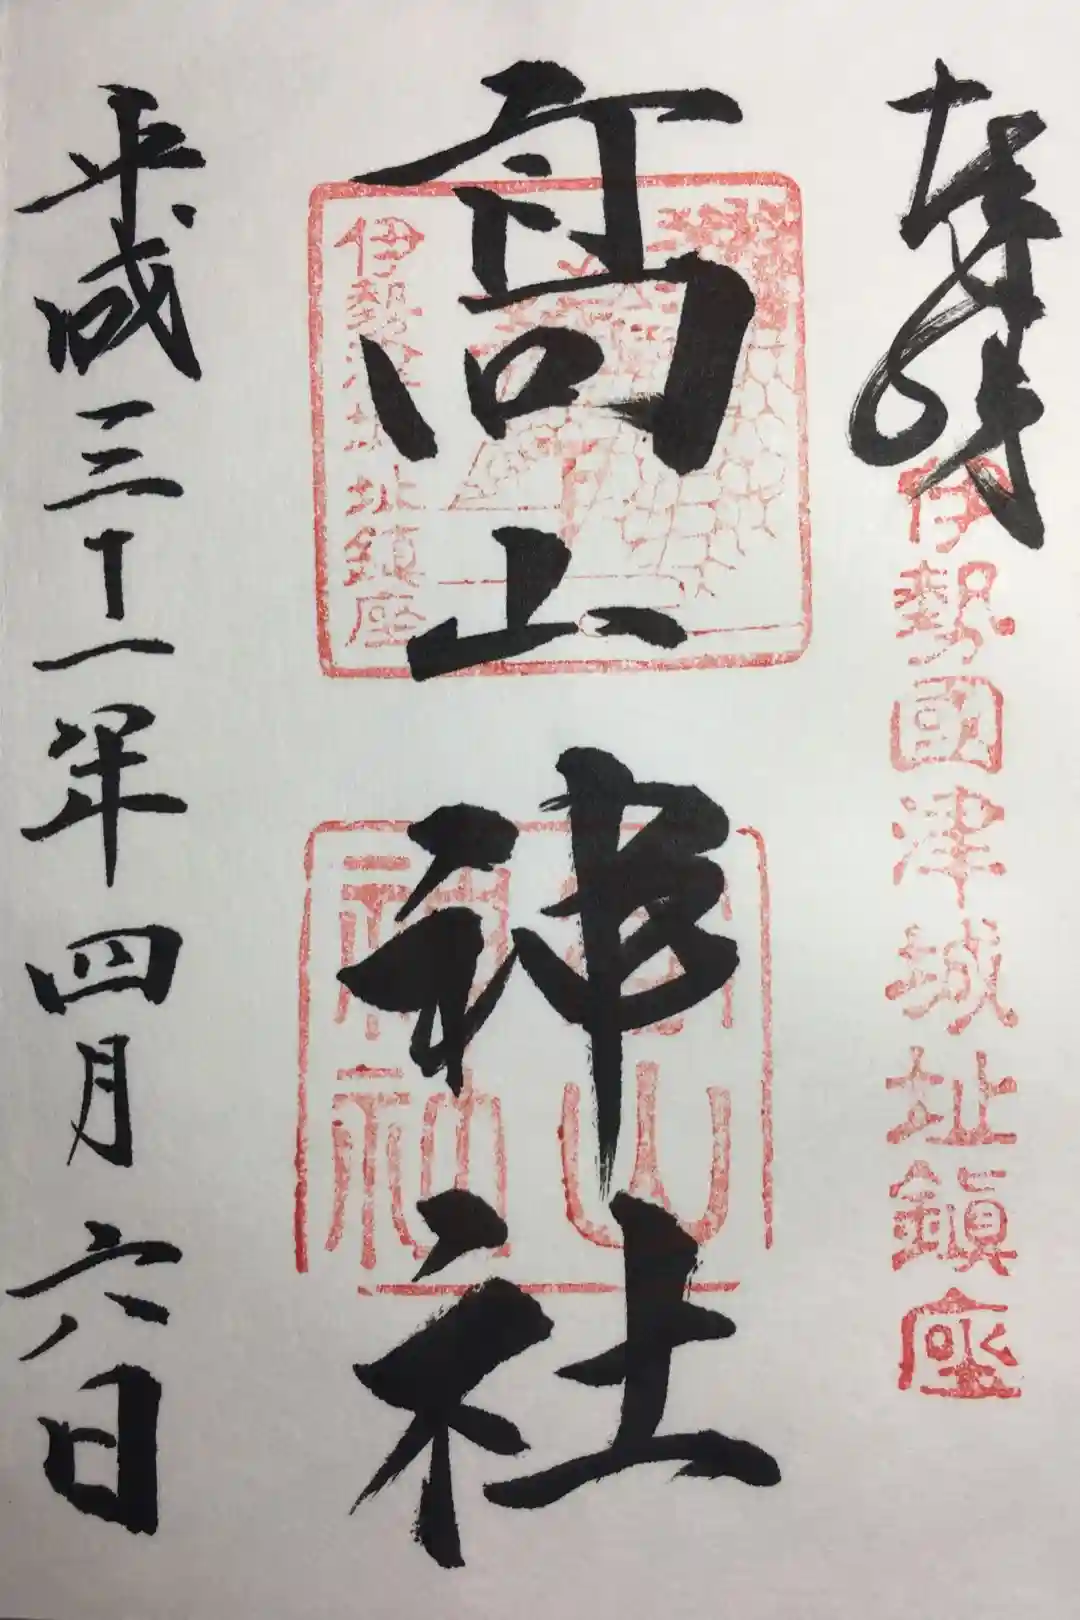 奉拝
伊勢國津城址鎮座
高山神社
伊勢津城址鎮座
高山
神社
平成三十一年四月六日